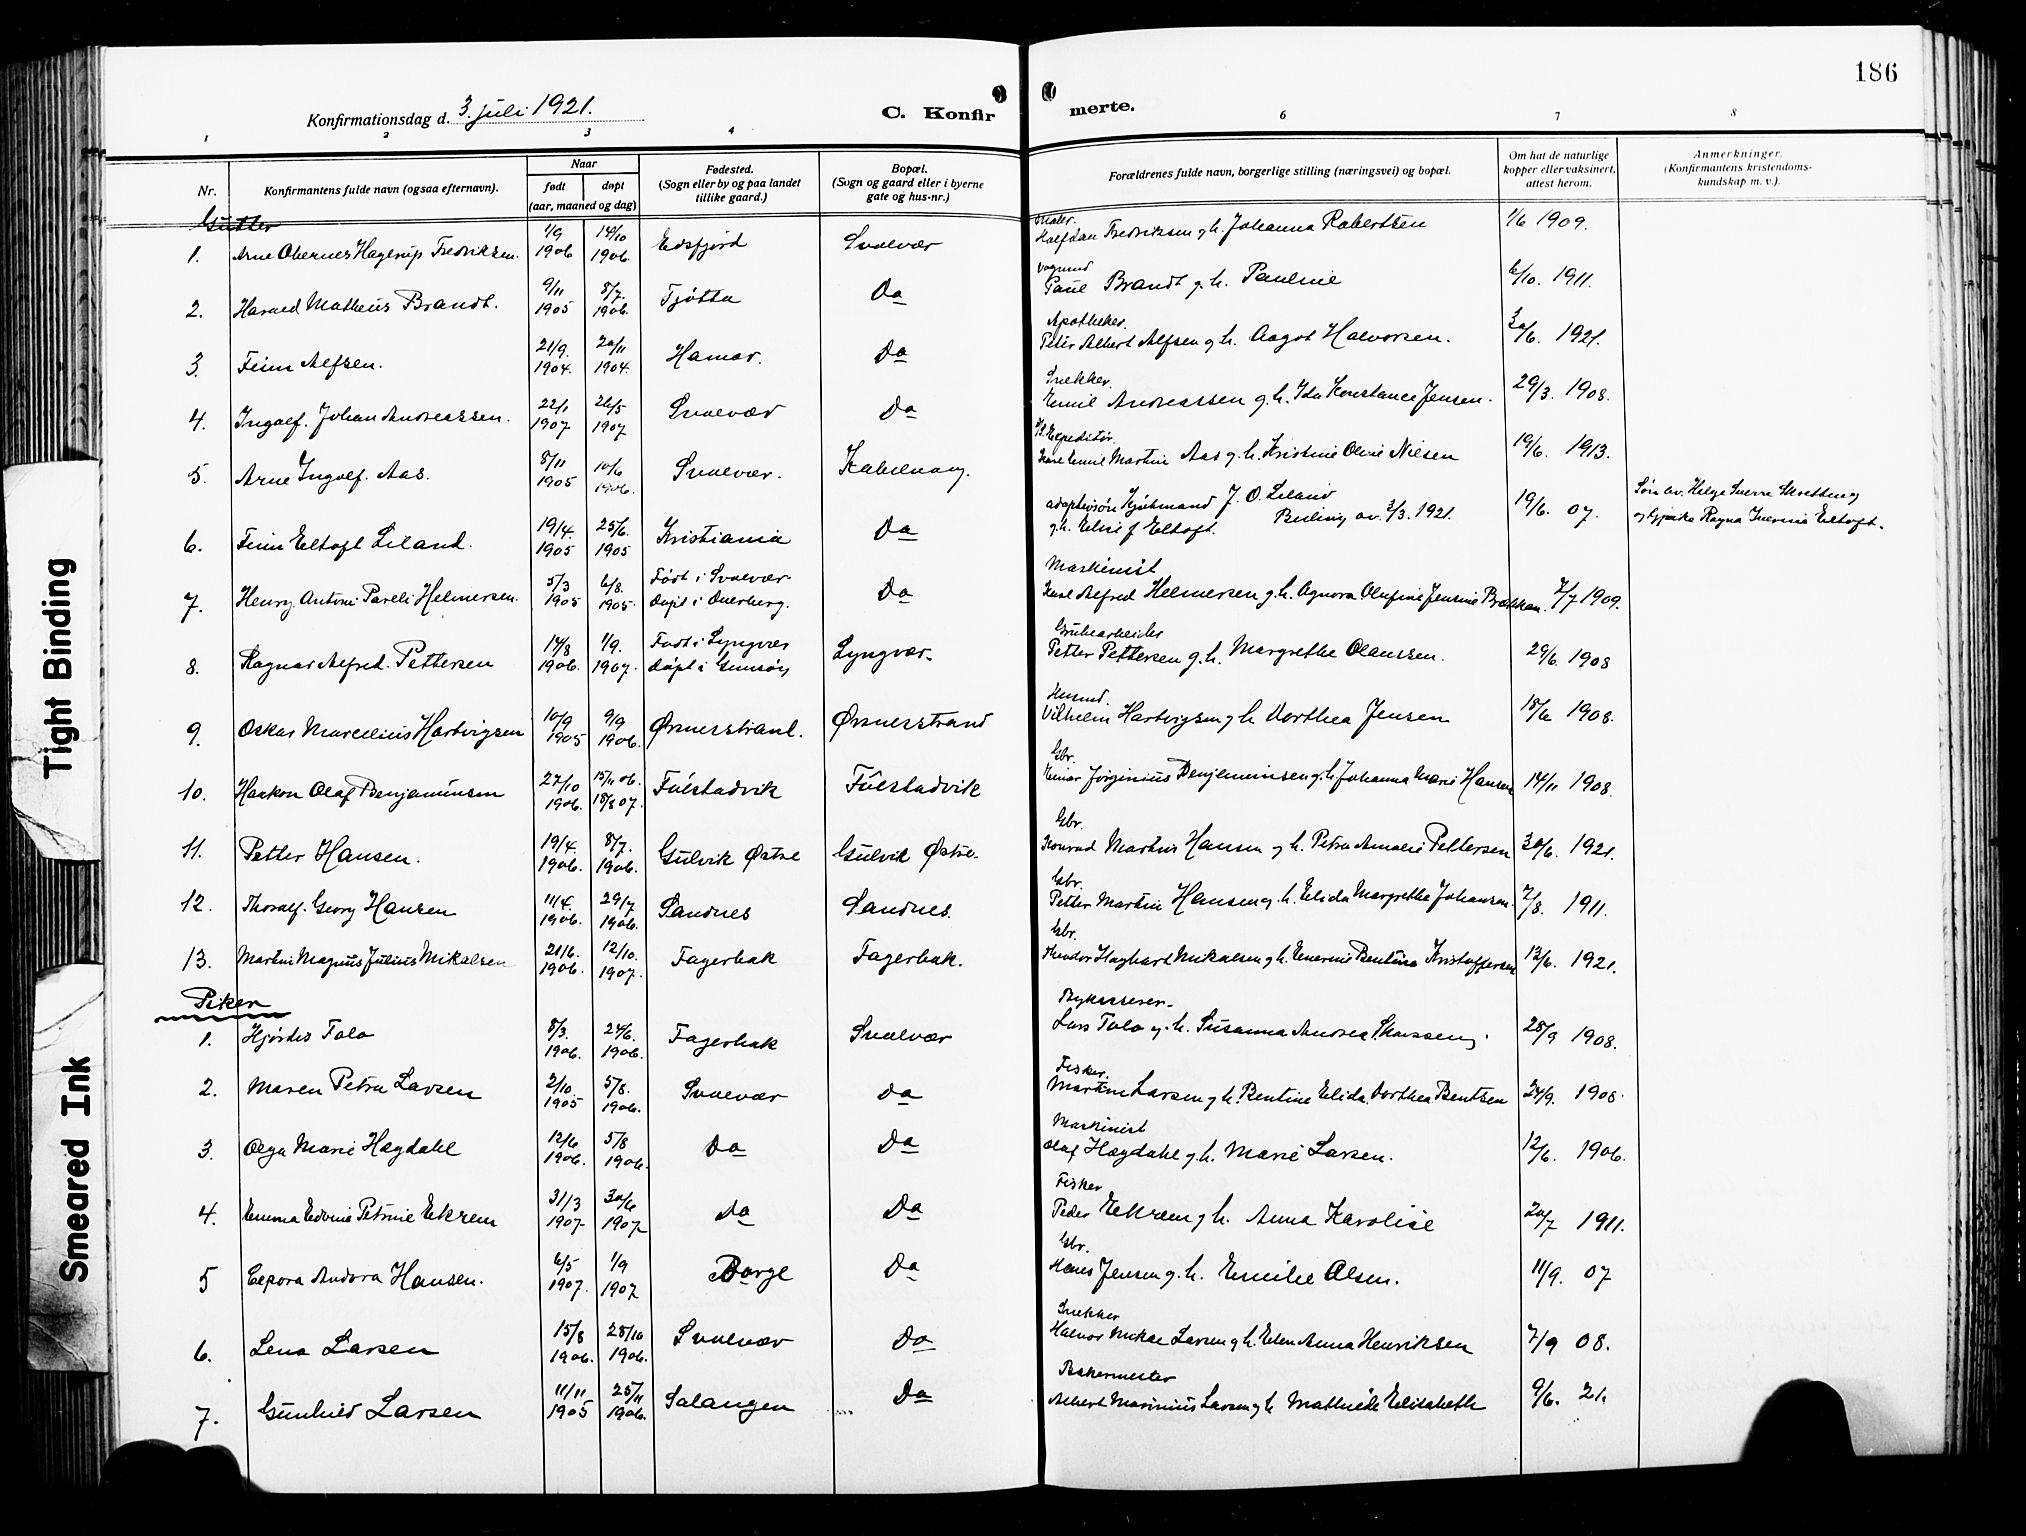 186
Konfirmationsdag d. 3. juli 1921.
C. Konfirmerte.
1 2 3 4 6 7 8
Nr.
Konfirmantens fulde navn (ogsaa efternavn).
Naar
født døpt
(aar, maaned og dag)
Fødested.
(Sogn eller by og paa landet
tillike gaard.)
Bopæl.
(Sogn og gaard eller i byerne
gate og hus-nr.)
Forældrenes fulde navn, borgerlige stilling (næringsvei) og bopæl.
Om hat de naturlige
kopper eller vaksinert,
attest herom.
Anmerkninger.
(Konfirmantens kristendoms-
kundskap m. v.).
Gutter
1. Arne Hagerup Fredriksen. 1/9 1906 14/10 1906. Edsfjord Svolvær Maler. Halfdan Fredriksen g. h. Johanna Robertsen 1/6 1909.
2. Harald Matheus Brandt. 9/11 1905 8/7. 1906. Tjøtta Do Paul Brandt g. h. Pauline 6/10. 1911.
3. Finn Alfsen. 21/9. 1904. 20/11 1904. Hamar. Do Apotheker. Peter Albert Alfsen g. h. Aagot Halvorsen. 30/6. 1921.
4. Ingolf. Johan Andreassen. 22/1 1907 26/5 1907 Svolvær Do Snekker. Emil Andreassen g. h. Ida Konstance Jensen. 29/3. 1908.
5. Arne Ingolf. Aas. 8/11 1905 10/6 1906. Svolvær. Kabelvaag. Expeditør. Karl Emil Martin Aas g. h. Kristine Oline Nilsen 19/6. 1913.
6. Finn Eltoft Leland. 19/4. 1905 25/6. 1905 Kristiania Do adoptivsøn Kjøbmand J. O. Leland g. h. Elise f. Eltoft. Bevling av 2/3. 1921. 19/6. 07. Søn av. Helge Sverre og Ragna Eltoft.
7. Henry Antoni Pareli Helmersen. 5/3 1905 6/8. 1905. Født i Svolvær Døpt i Do Maskinist Karl Alfred Helmersen g. h. Agnora Olufine Jensine 7/7 1909.
8. Ragnar Alfred. Pettersen 14/8 1906. 1/9. 1907. Født i Lyngvær døpt i Gimsøy Lyngvær. Grubearbeider Petter Pettersen g. h. Margrethe Olaussen. 29/6. 1908
9. Oskar Marcelius Hartvigsen 10/9 1905 9/9 1906. Ørsnesstrand. Ørsnesstrand Husmd. Vilhelm Hartvigsen g. h. Dorthea Jensen 18/6 1908.
10. Haakon Olaf Benjaminsen 27/10 1906. 15/11 06. 18/8 07. Fúlstadvik Fúlstadvik Gbr. Einar Jørginius Benjaminsen g. h. Johanna Marie Hansen 14/11 1908.
11. Petter Hansen. 19/4. 1906. 8/7. 1906. Gulvik Østre Gulvik Østre. Gbr. Konrad Martins Hansen g. h. Petra Amalie Pettersen 30/6. 1921.
12. Thoralf. Georg Hansen 11/4. 1906. 29/7 1906. Sandnes Sandnes. Gbr. Petter Martin Hansen g. h. Elida Margrethe Johansen. 7/8. 1911.
13. Martin Magnus Julius Mikalsen 21/6. 1906. 12/10. 1907. Fagerbak Fagerbak. Gbr. Theodor Hagbart Mikalsen g. h. Bentine Kristoffersen 12/6. 1921.
Piker
1. Hjørdis Tolo 8/3. 1906. 24/6. 1906. Fagerbak Svolvær Bykasserer. Lars Tolo g. h. Susanna Andrea 28/9 1908.
2. Maren Petra Larsen 2/10. 1905 5/8. 1906. Svolvær Do Fisker. Martin Larsen g. h. Bentine Elida Dorthea Bentsen 24/9. 1908.
3. Olga Marie Hagdahl 12/6 1906. 5/8 1906. Do Do Maskinist Olaf Hagdahl g. h. Marie Larsen. 12/6. 1906.
4. Emma Edvine Petrine Ekrem 31/3 1907. 30/6 1907 Do Do Fisker Peder Ekrem g. h. Anna Karolise 20/7 1911.
5 Andora Hansen. 6/5 1907. 1/9 1907 Borge Do Gbr. Hans Jensen g. h. Emilie Olsen. 11/9. 07
6. Lena Larsen 15/8 1906. 28/10 1906. Svolvær Do Snekker Halvor Mikal Larsen g. h. Elen Anna Henriksen 7/9 08.
7. Gunhild Larsen 11/11 1905 25/11 1906. Salangen Do Bakermester Albert Marinius Larsen g. h. Mathilde Elisabeth 9/6. 21.
Tight Binding
Smeared Ink